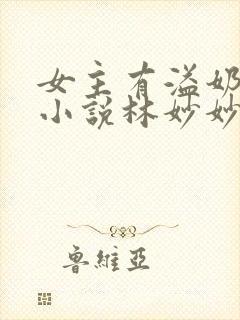 女主有溢奶
小說林妙妙
魯維亞